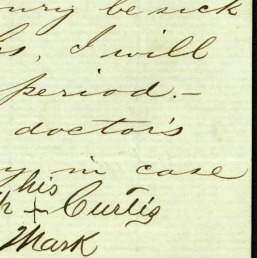 be sick
I will
period.—
doctor's
in case
his
+ Curtis
Mark